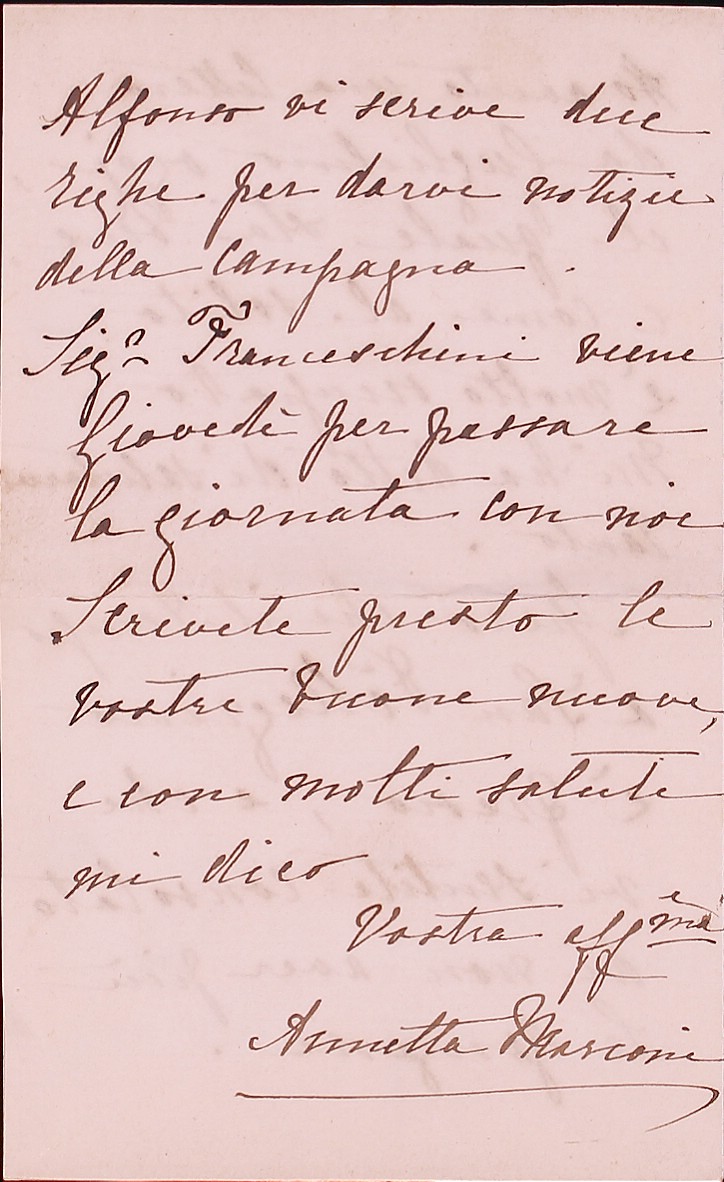 Alfonso vi scrive due
righe per darvi notizie
della Campagna.
Sigr Franceschini viene
Giovedì per passare
la giornata con noi
Scrivete presto le
vostre buone nuove,
e con molti saluti
mi dico
Vostra affma
Annetta Marconi